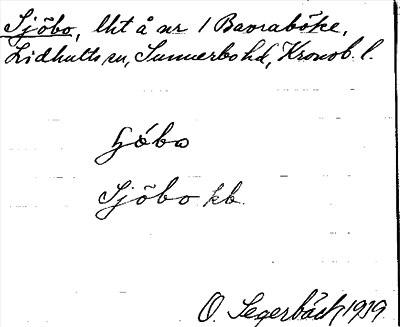 Sjöbo, lht å nr 1 Bavraböke,
Lidhults sn, Sunnerbo hd, Kronob. l.
Sjöbo kb.
O. Segerbäck 1919